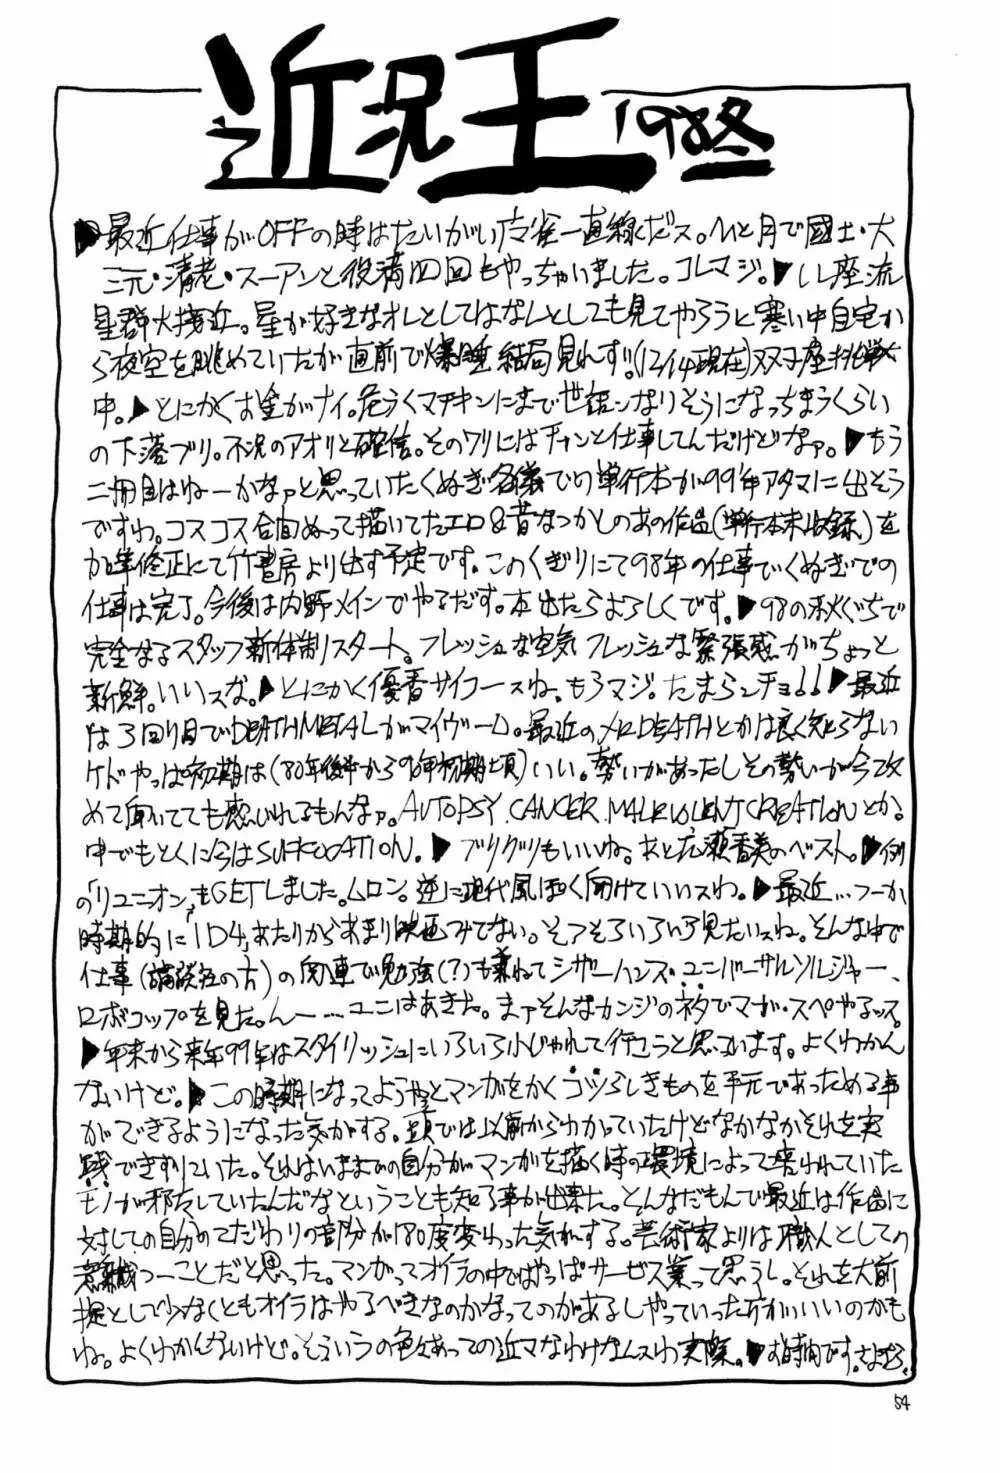 近況王 1998冬
▶最近仕事がOFFの時はたいがい麻雀一直線だス。ひと月で國士・大
三元・清老・スーアンと役満四回もやっちゃいました。コレマジ。▶しし座流
星群大接近。星が好きなオレとしてはなんとしても見てやろうと寒い中自宅か
ら夜空を眺めていたが直前で爆睡 結局見れず!!(12/14現在)双子座挑戦
中。▶とにかくお金がナイ。危うくマチキンにまで世話ンなりそうになっちまうくらい
の下落ブリ。不況のアオリと確信。そのワリにはチャンと仕事してんだけどなァ。▶もう
二冊目はねーかなァと思っていたくぬぎ名儀での単行本が99年アタマに出そう
ですわ。コスコス合間ぬって描いてたエロ&昔なつかしのあの作品(単行本未収録)を
加筆修正にて竹書房より出す予定です。このくぎりにて98年の仕事でくぬぎでの
仕事は完了。今後は内野メインでやるだす。本出たらよろしくです。▶98の秋ぐちで
完全なるスタッフ新体制スタート。フレッシュな空気 フレッシュな緊張感がちょっと
新鮮。いいスな。▶とにかく優香サイコースね。もうマジ。たまらンチョ!!▶最近
は3回り目でDEATHMETALがマイヴーム。最近のメロDEATHとかは良く知らない
ケドやっぱ初期は(80年後半から90年初期頃)いい。勢いがあったしその勢いが今改
めて聞いてても感じいれるもんなァ。AUTOPSY.CANCER.MALEVOLENTCREATIONとか。
中でもとくに今はSUFFOCATION.▶ブリグリもいいね。あと広瀬香美のベスト。▶例
の「リユニオン」もGETしました。ムロン。逆に現代風ぽく聞けていいスわ。▶最近…つーか
時期的に「ID4」あたりからあまり映画みてない。そろそろいろいろ見たいスね。そんな中で
仕事(講談社の方)の関連で勉強(?)も兼ねてシザーハンズ・ユニバーサルソルジャー、
ロボコップを見た。んー…ユニはあきた。まァそんなカンジのネタでマガ・スペやるッス。
▶年末から来年99年はスタイリッシュにいろいろ小じゃれて行こうと思っています。よくわかん
ないけど。▶この時期になってようやくマンガをかくコツらしきものを手元であっためる事
ができるようになった気がする。頭では以前からわかっていたけどなかなかそれを実
践できずにいた。それはいままでの自分がマンガを描く時の環境によって培われていた
モノが邪魔していたんだなということも知る事が出来た。そんなだもんで最近は作品に
対しての自分のこだわりの部分が180度変わった気がする。芸術家よりは職人としての
意識つーことだと思った。マンガってオイラの中ではやっぱサービス業って思うし。それを大前
提として少なくともオイラはやるべきなのかなってのがあるしやっていった方がいいのかも
ね。よくわかんないけど。そういうの色々あっての近マなわけなんスわ実際。▶お時間です。さよなら。
54